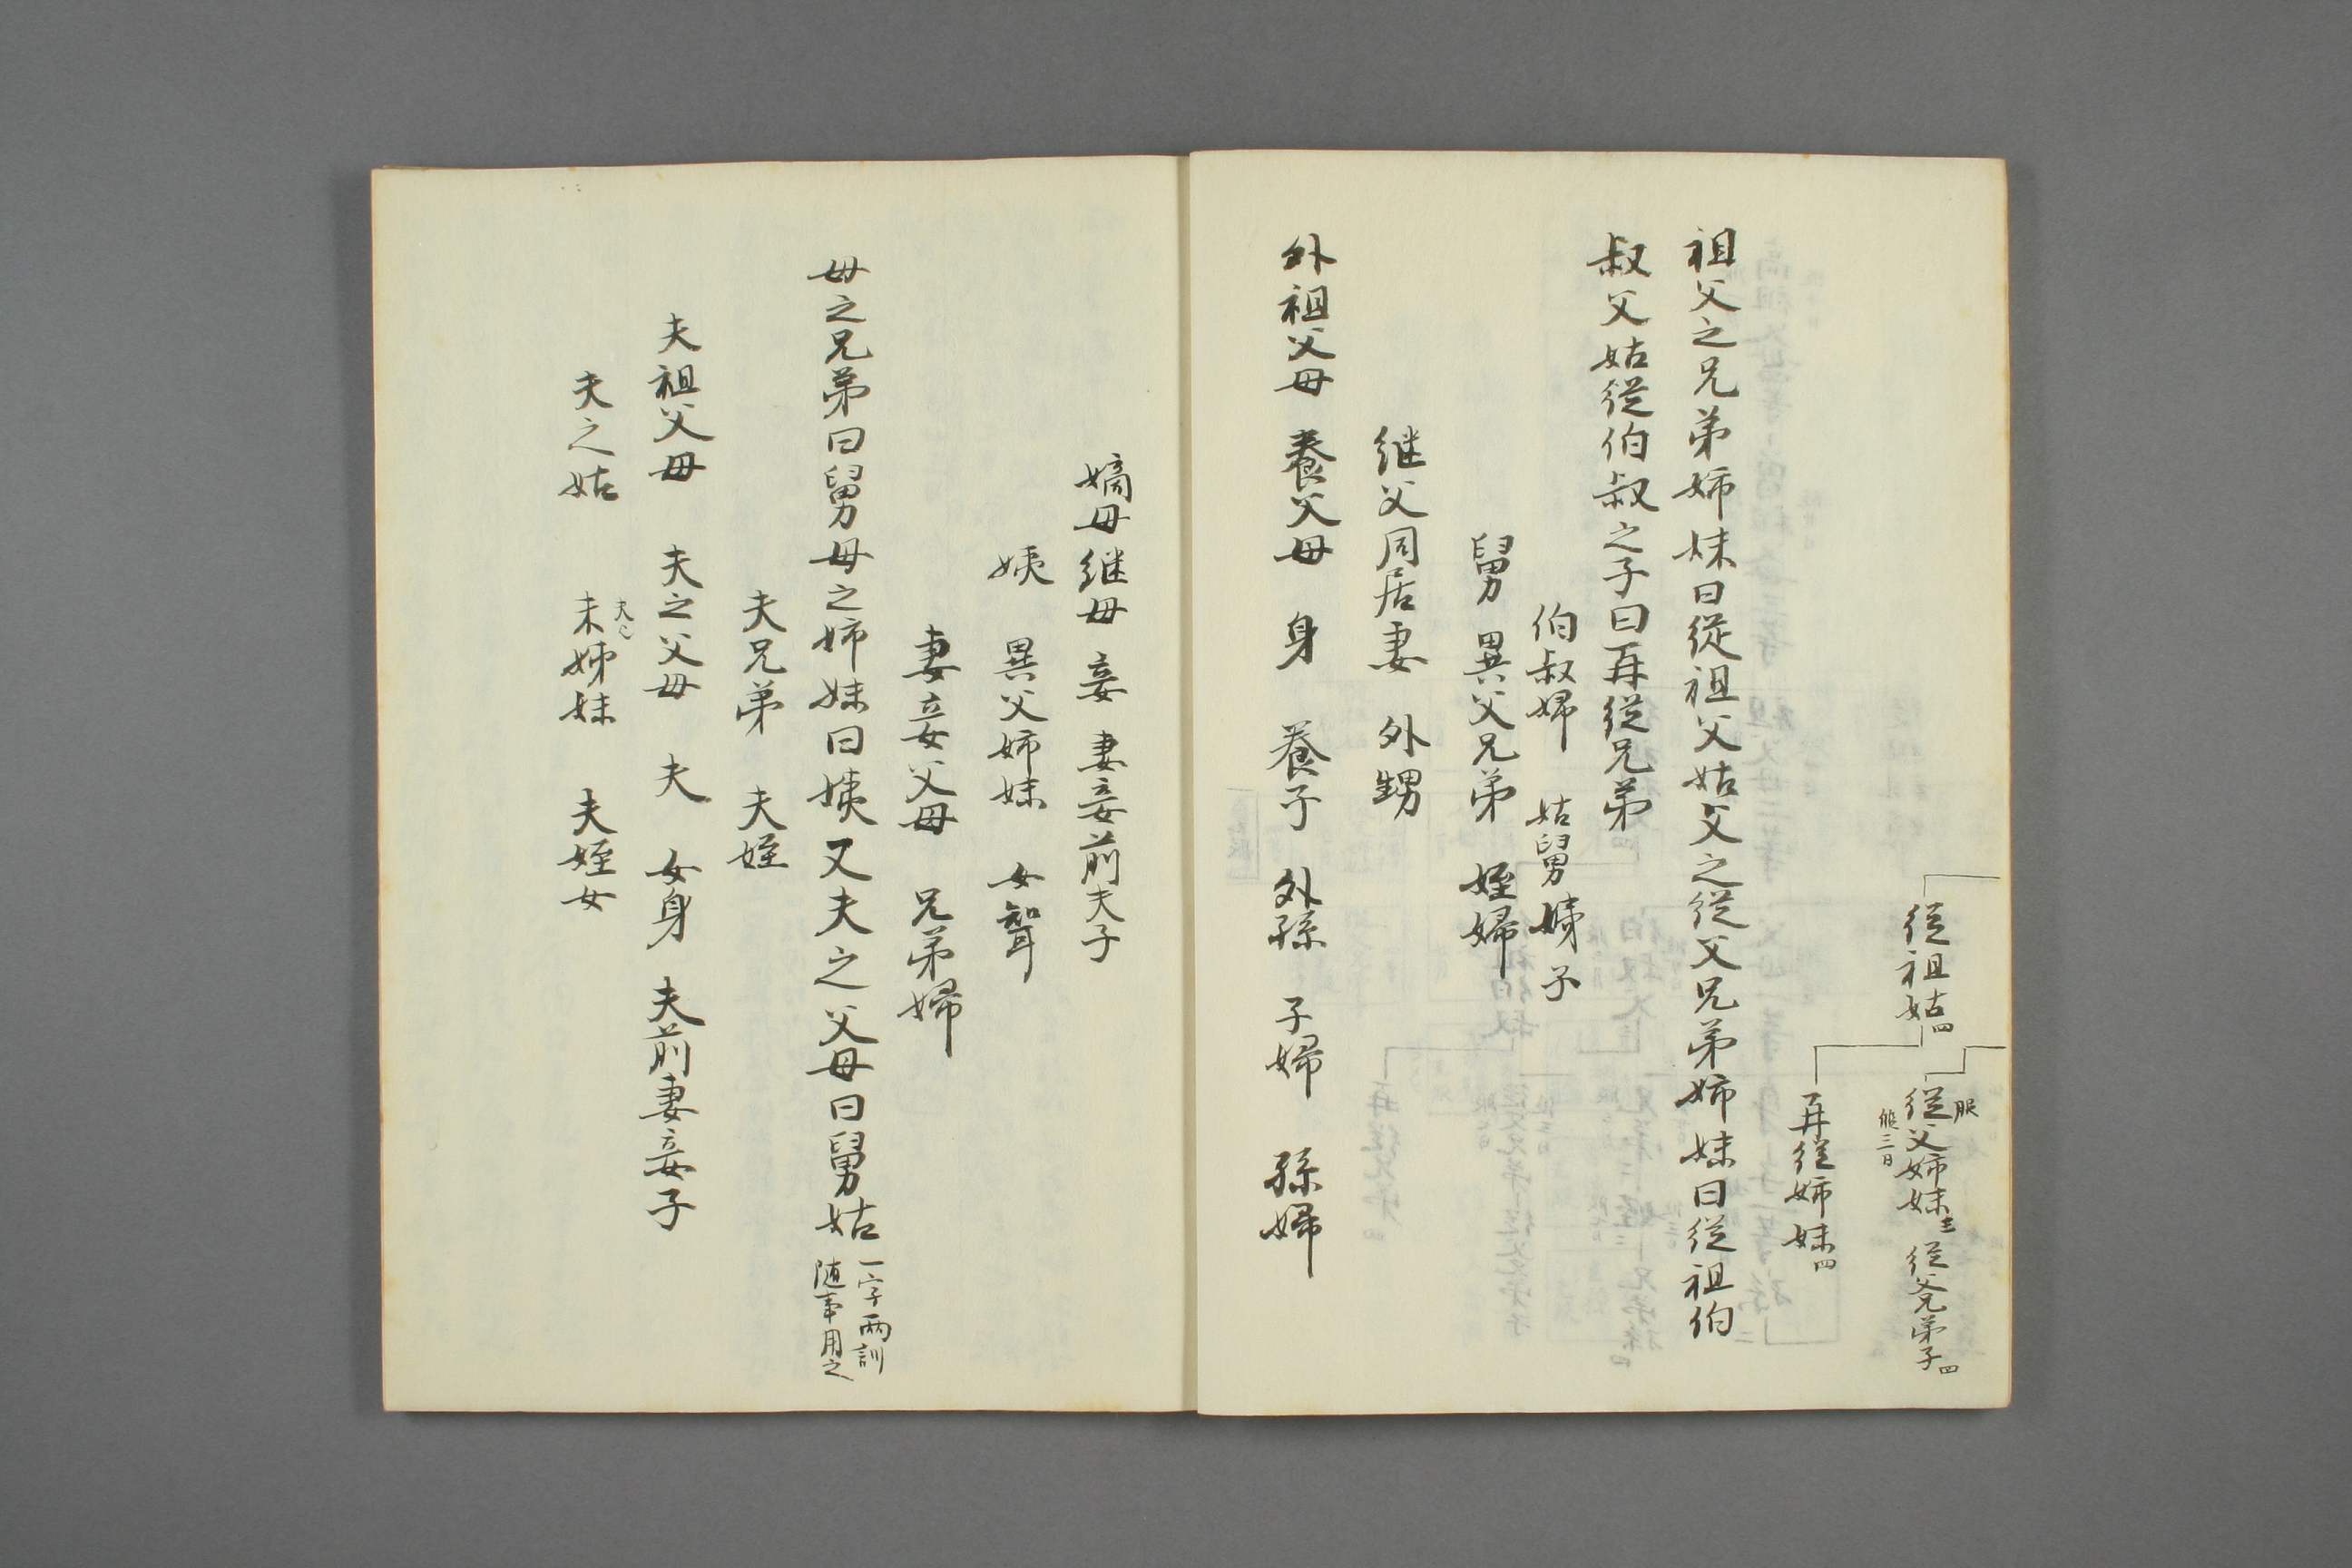 從祖姑四
服
從父姉妹三 從父兄弟子四
假三日
再從姉妹四
祖父之兄弟姉妹曰從祖父姑父之從父兄弟姉妹曰從祖伯
叔父姑從伯叔之子曰再從兄弟
伯叔婦 姑舅姨子
舅 異父兄弟 姪婦
継父同居妻 外甥
外祖父母 養父母 身 養子 外孫 子婦 孫婦
嫡母継母 妾 妻妾前夫子
姨 異父姉妹 女聟
妻妾父母 兄弟婦
母之兄弟曰舅母之姉妹曰姨又夫之父母曰舅姑
一字両訓
随事用之
夫兄弟 夫姪
夫祖父母 夫之父母 夫 女身 夫前妻妾子
夫
夫之姑 未姉妹 夫姪女